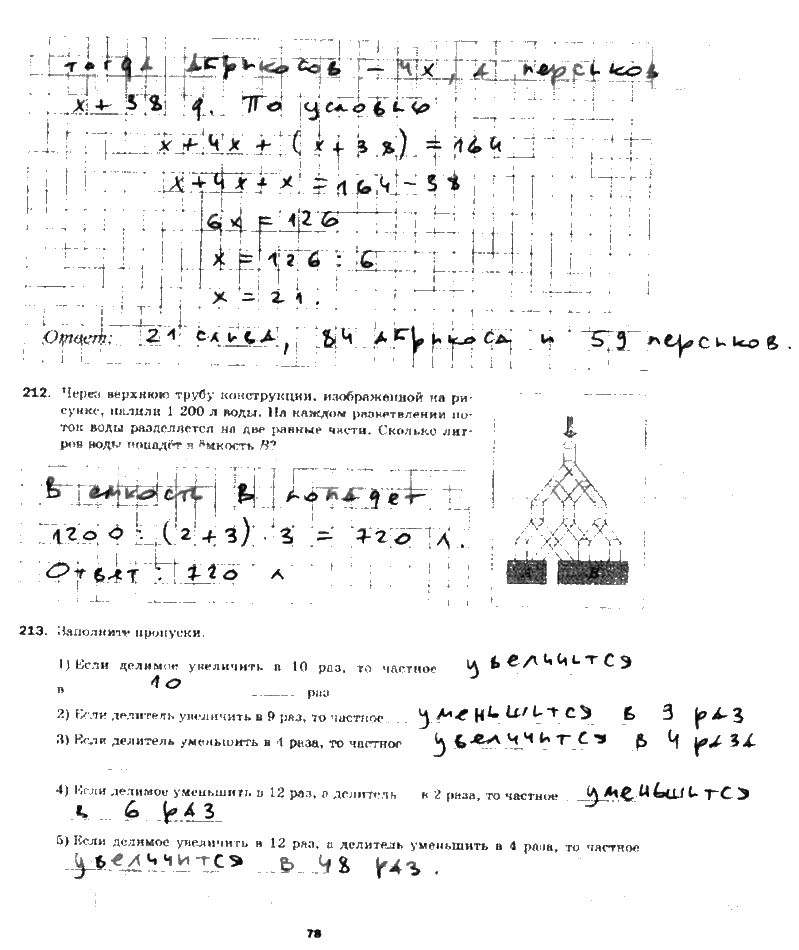 тогда абрикосов – 4x, а персиков
x + 38 д. По условию
x + 4x + (x + 38) = 164
x + 4x + x = 164 – 38
6x = 126
x = 126 : 6
x = 21.
Ответ: 21 слива, 84 абрикоса и 59 персиков.
212. Через верхнюю трубу конструкции, изображенной на ри-
сунке, налили 1 200 л воды. На каждом разветвлении по-
ток воды разделяется на две равные части. Сколько лит-
ров воды попадёт в ёмкость B?
В емкость В попадет
1200 : (2 + 3) · 3 = 720 л.
Ответ: 720 л
A B
213. Заполните пропуски.
1) Если делимое увеличить в 10 раз, то частное увеличится
в 10 раз
2) Если делитель увеличить в 9 раз, то частное уменьшится в 9 раз
3) Если делитель уменьшить в 4 раза, то частное увеличится в 4 раза
4) Если делимое уменьшить в 12 раз, а делитель в 2 раза, то частное уменьшится
в 6 раз
5) Если делимое увеличить в 12 раз, а делитель уменьшить в 4 раза, то частное
увеличится в 48 раз.
78